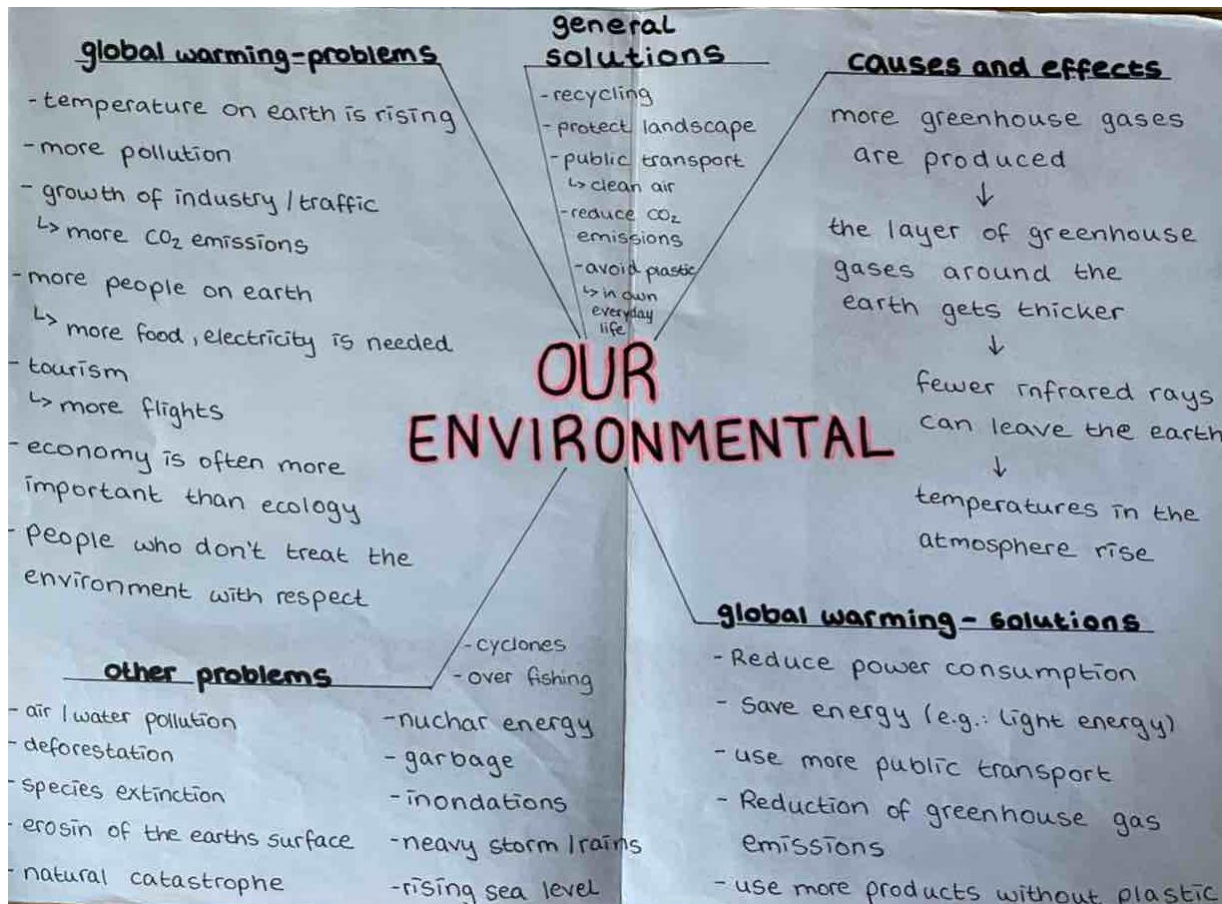 global warming-problems
- temperature on earth is rising
- more pollution
- growth of industry / traffic
↳ more CO₂ emissions
- more people on earth
↳ more food, electricity is needed
- tourism
↳ more flights
- economy is often more
important than ecology
- people who don't treat the
environment with respect
general
solutions
- recycling
- protect landscape
- public transport
↳ clean air
- reduce CO₂
emissions
- avoid plastic
↳ in own
everyday
life
causes and effects
more greenhouse gases
are produced
↓
the layer of greenhouse
gases around the
earth gets thicker
↓
fewer infrared rays
can leave the earth
↓
temperatures in the
atmosphere rise
OUR
ENVIRONMENTAL
other problems
- air / water pollution
- deforestation
- species extinction
- erosin of the earths surface
- natural catastrophe
- cyclones
- over fishing
- nuchar energy
- garbage
- inondations
- neavy storm / rains
- rising sea level
global warming - solutions
- Reduce power consumption
- Save energy (e.g.: light energy)
- use more public transport
- Reduction of greenhouse gas
emissions
- use more products without plastic